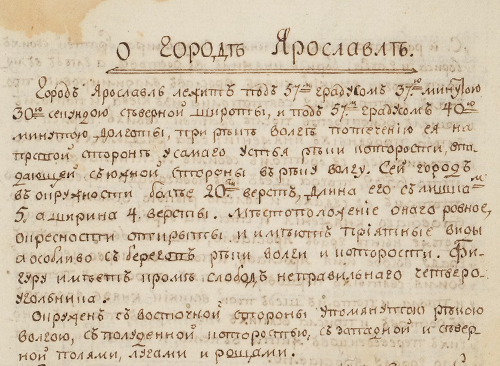 О городѣ Ярославлѣ.
Городъ Ярославль лежитъ подъ 57мъ градусомъ 37ю минутою
30ю секундою сѣверной широты, и подъ 57мъ градусомъ 40ю
минутою долготы, при рѣкѣ Волгѣ потечению ея на
правой сторонѣ усамаго устья рѣки которости, впа
дающей съ южной стороны врѣку волгу. Сей городъ
въ окружности болѣе 20ти верстъ, длина его слишкомъ
5, а ширина 4. версты. Мѣстоположенiе онаго ровное,
окресности открыты и имѣютъ прiятные виды
а особливо съ береговъ рѣки волги и которости. Фи-
гуру имѣетъ кромѣ слободъ неправильнаго четверо-
угольника.
Окруженъ съ восточной стороны упомянутою рѣкою
волгою, съ полуденной которостью, съ западной и север
ной полями, лугами и рощами.